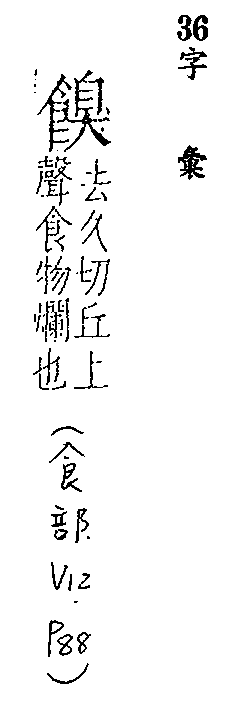 36
字彙
去久切丘上
聲食物爛也
(食部 V12. P88)